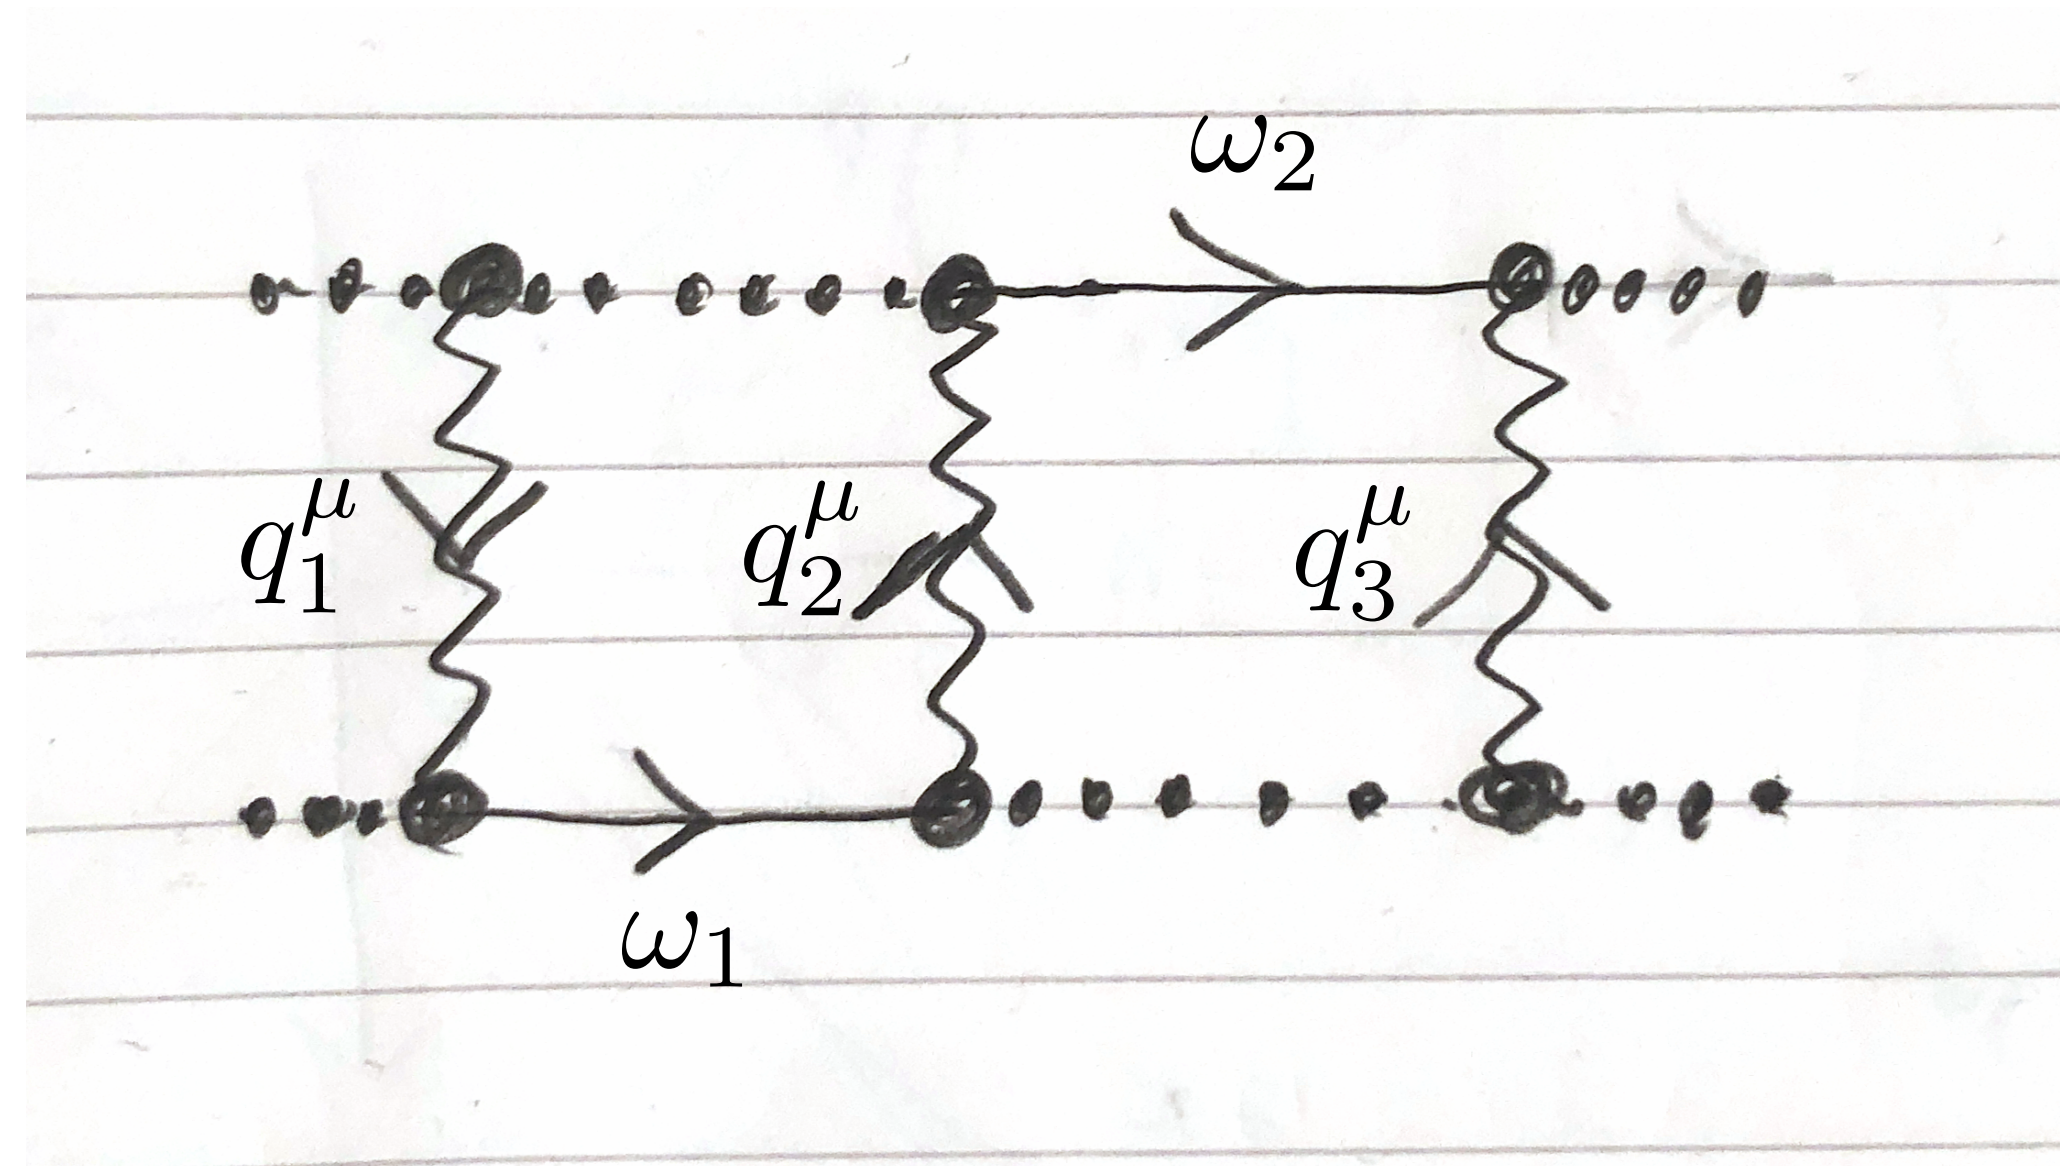 ω₂
q₁^μ q₂^μ q₃^μ
ω₁